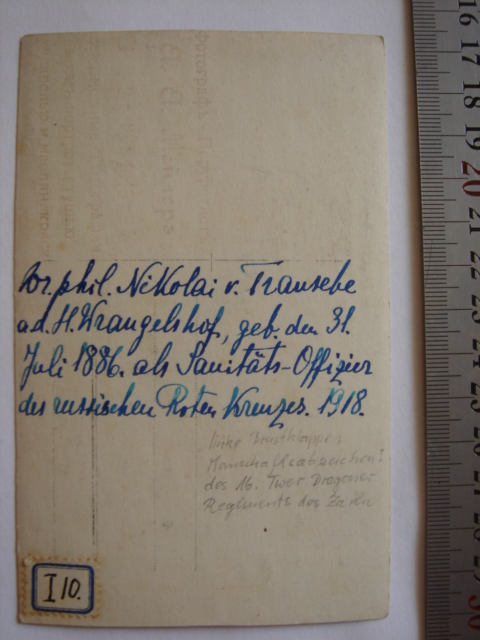 Dr. phil. Nikolai v. Transehe
a.d. H. Wrangelshof, geb. den 31.
Juli 1886. als Sanitäts-Offizier
des russischen Roten Kreuzes. 1918.
linke Brustklappe:
Mannschaftsabzeichen
des 16. Twer Dragoner
Regiments des Zaren
I 10.
16
17
18
19
20
21
22
23
24
25
26
27
28
29
30